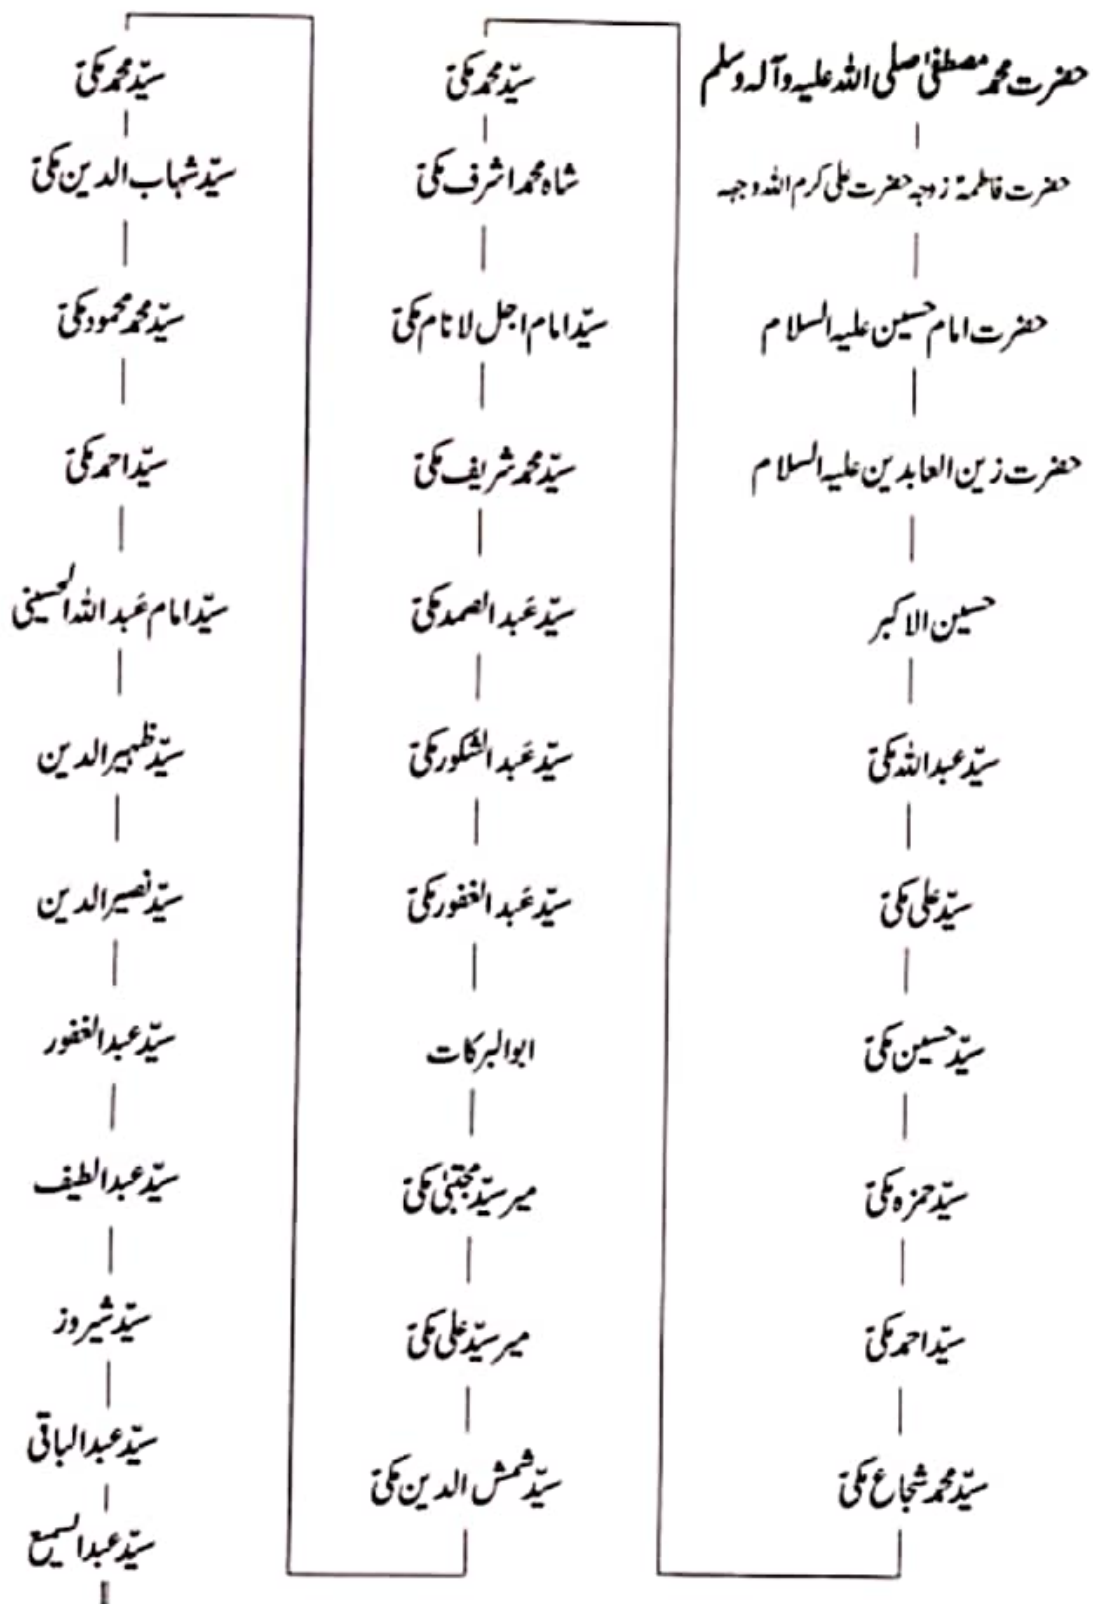 حضرت محمد مصطفیٰ صلی اللہ علیہ وآلہ وسلم
حضرت فاطمہؓ زوجہ حضرت علی کرم اللہ وجہہ
حضرت امام حسین علیہ السلام
حضرت زین العابدین علیہ السلام
حسین الاکبر
سیّد عبداللہ مکیّ
سیّد علی مکیّ
سیّد حسین مکیّ
سیّد حمزہ مکیّ
سیّد احمد مکیّ
سیّد محمد شجاع مکیّ
سیّد محمد مکیّ
شاہ محمد اشرف مکیّ
سیّد امام اجل لانام مکیّ
سیّد محمد شریف مکیّ
سیّد عَبد الصمد مکیّ
سیّد عَبد الشکور مکیّ
سیّد عَبد الغفور مکیّ
ابو البرکات
میر سیّد مجتبیٰ مکیّ
میر سیّد علی مکیّ
سیّد شمش الدین مکیّ
سیّد محمد مکیّ
سیّد شہاب الدین مکیّ
سیّد محمد محمود مکیّ
سیّد احمد مکیّ
سیّد امام عَبد اللہ الحسینی
سیّد ظہیر الدین
سیّد نصیر الدین
سیّد عبد الغفور
سیّد عبد الطیف
سیّد شیروز
سیّد عبد الباقی
سیّد عبد السمیع